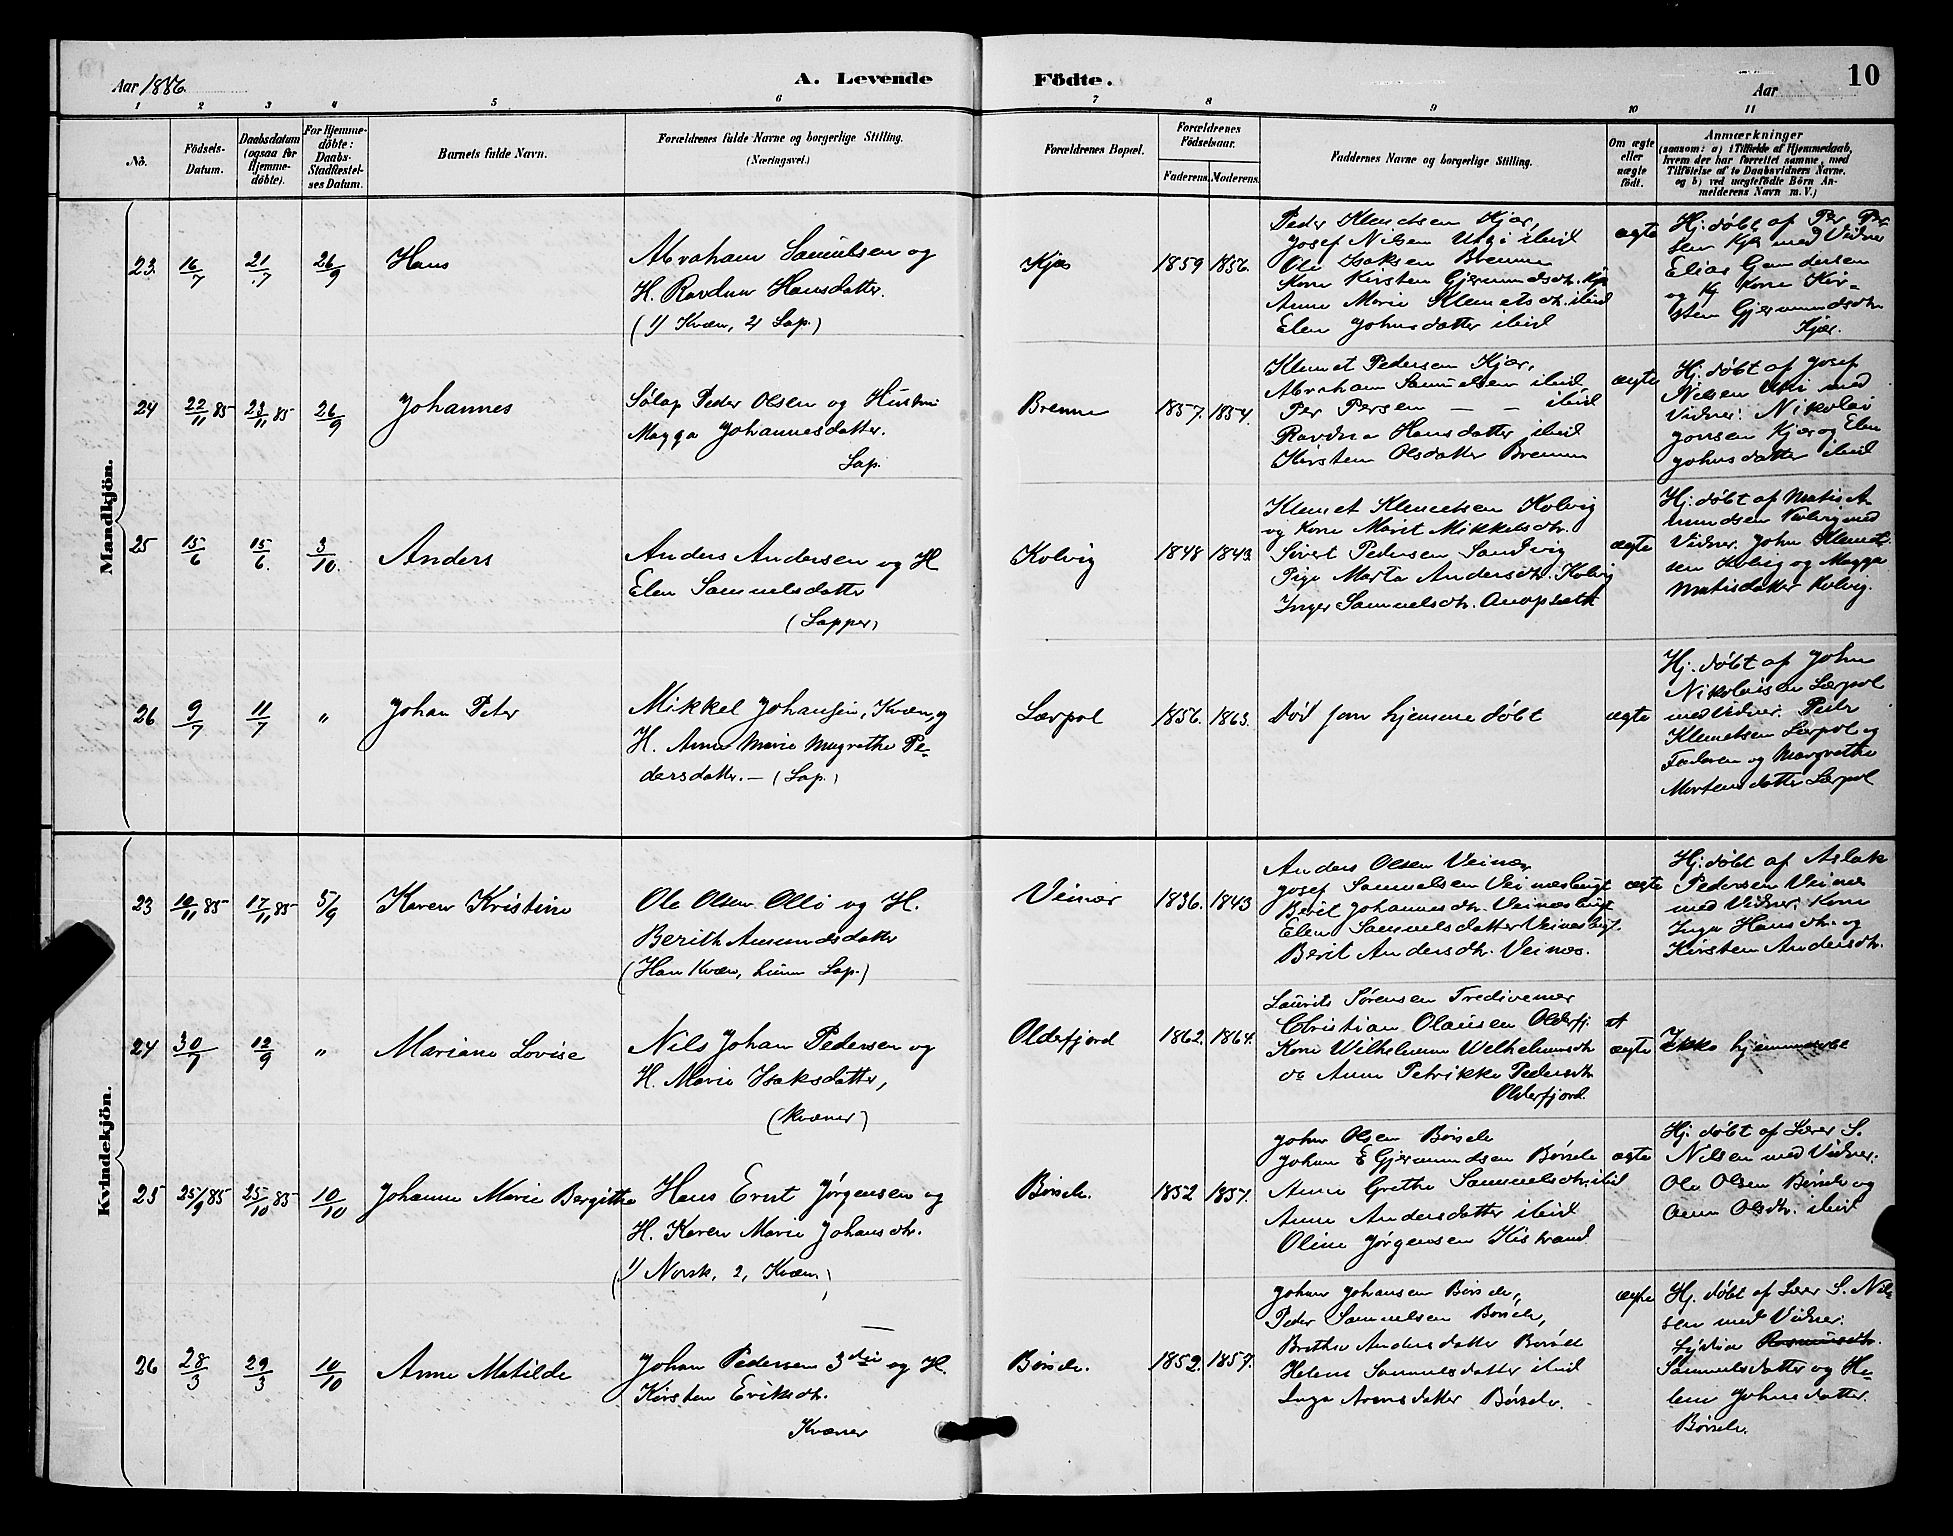 Aar 1886.
A. Levende
Födte.
Aar
10
1 2 3 4 5 6 7 8 9 10 11
No.
Födsels-
Datum.
Daabsdatum
(ogsaa for
Hjemme-
döbte).
For Hjemme-
döbte:
Daabs-
Stadfæstel-
ses Datum.
Barnets fulde Navn.
Forældrenes fulde Navne og borgerlige Stilling.
(Næringsvei.)
Forældrenes Bopæl.
Forældrenes
Födselsaar.
Faderens.
Moderens.
Faddernes Navne og borgerlige Stilling.
Om ægte
eller
uægte
født.
Anmærkninger
(saasom: a) i Tilfælde af Hjemmedaab,
hvem der har forrettet samme, med
Tilföielse af to Daabsvidners Navne.
og b) ved uægtefödte Börn An-
melderens Navn m. V.)
Mandkjön.
23. 16/7 21/7 26/9 Hans
Abraham Samuelsen og
H. Ravdna Hansdatter.
(1) Kvæn, 2) Lap.)
Kjæs 1859 1856.
Peder Klemetsen Kjær,
Josef Nilsen Utsi ibid
Ole Isaksen Brenna
Kone Kirsten Gjermundsdtr. Kjæs
Anne Marie Klemetsdtr. ibid
Elen Johnsdatter ibid
ægte
Hj. døbt af Per Per-
sen Kjæs med Vidner
Elias Gundersen
og Kone Kir-
sten Gjermundsdtr
Kjær.
24 22/11 85 23/11 85 26/9 Johannes
Sølap Peder Olsen og Hustru
Magga Johannesdatter.
Lap.
Brenna 1857. 1854.
Klemet Pedersen Kjær,
Abraham Samuelsen ibid,
Per Persen — — ibid
Ravdna Hansdatter ibid
Kirsten Olsdatter Brenna
ægte
Hj. døbt af Josef
Nilsen Utsi med
Vidner: Nikolai
Jonsen Kjær og Elen
Johnsdatter ibid
25 15/6 15/6. 3/10. Anders
Anders Andersen og H
Elen Samuelsdatter
(Lapper)
Kolvig 1848 1843.
Klemet Klemetsen Kolvig
og Kone Marit Mikkelsdtr.
Sivert Pedersen Sandvig
Pige Marta Andersdtr. Kolvig
Inger Samuelsdtr.
ægte
Hj. døbt af Matis A
mundsen Kolvig med
Vidner. John Klemet-
sen Kolvig og Magga
Matisdatter Kolvig.
26 9/7 11/7 " Johan Peter
Mikkel Johansen, Kvæn, og
H. Anne Marie Magrethe Pe-
dersdatter. — (Lap.)
Lærpol 1856. 1863.
Død som hjemmedøbt
ægte
Hj. døbt af John
Nikolaisen Lærpol
med Vidner. Peder
Klemetsen Lærpol og
Faderen og Margrethe
Mortensdatter Lærpol
Kvindekjön.
23 10/11 85 17/11 85 5/9 Karen Kristine
Ole Olsen Ollo og H.
Berith Amundsdatter
(Han Kvæn, hun Lap.)
Veinæs 1836. 1843
Anders Olsen Veinæs
Josef Samuelsen Veinæsbugt
Berit Johannesdtr. Veinæsbugt
Elen Samuelsdatter Veinæsbgt.
Berit Andersdtr. Veinæs.
ægte
Hj. døbt af Aslak
Pedersen Veinæs
med Vidner. Kone
Inga Hansdtr. og
Kirsten Andersdtr.
24 30/7 12/9 " Mariane Lovise
Nils Johan Pedersen og
H. Marie Isaksdatter,
(Kvæner)
Olderfjord 1862. 1864.
Laurits Sørensen Tredivenæs
Christian Olausen Olderfj.
Kone Wilhelmine Welhelmsdtr
do Anne Petrikke Pedersdtr
Olderfjord.
ægte
Ikke hjemmedøbt
25 25/9 85 25/10 85 10/10 Johanne Marie Bergitha
Hans Ernt Jørgensen og
H. Karen Marie Johansdtr.
(1) Norsk, 2, Kvæn)
Børselv. 1852 1857.
John Olsen Børselv
Johan E Gjermundsen Børselv
Anne Grethe Samuelsdtr. ibid
Anne Andersdatter ibid
Oline Jørgensen Kistrand
ægte
Hj. døbt af Lærer S.
Nilsen med Vidner:
Ole Olsen Børselv og
Anne Olsdtr. ibid
26 28/3 29/3 10/10 Anne Matilde
Johan Pedersen 3die og H.
Kirsten Eriksdtr.
Kvæner
Børselv. 1852. 1857.
Johan Johansen Børselv,
Peder Samuelsen Børselv,
Brita Andersdatter Børselv
Helene Samuelsdatter ibid
Inga Aronsdatter Børselv.
ægte
Hj. døbt af Lærer S. Nil-
sen med Vidner:
Lydia Rasmusdtr.
Samuelsdatter og He-
lene Johnsdatter.
Børselv.